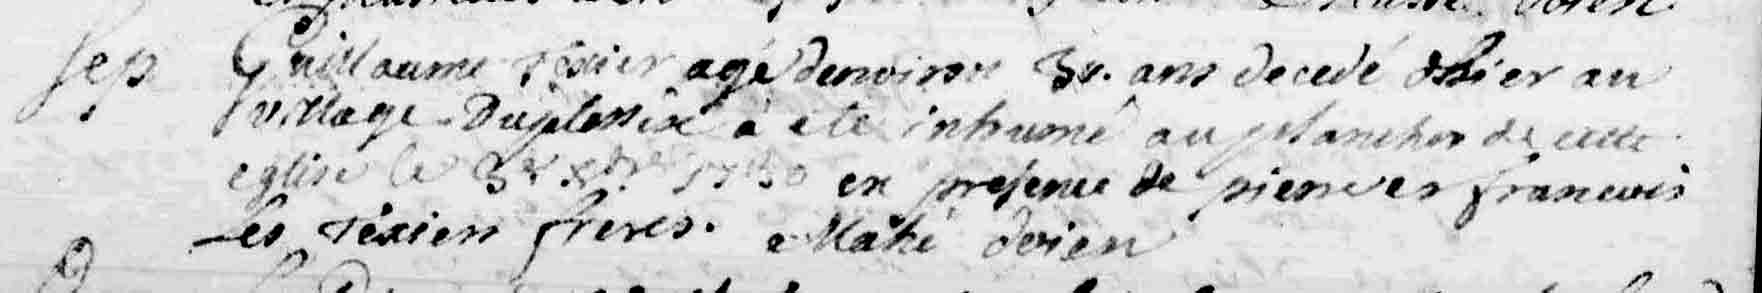 doien
Sep Guillaume Téxier agé denviron 3 ans decedé dhier au
village Duplessix à été inhumé au plancher de cette
eglise le 3e 1730 en presence de pierre et francois
les Téxiers freres. Mahé doien